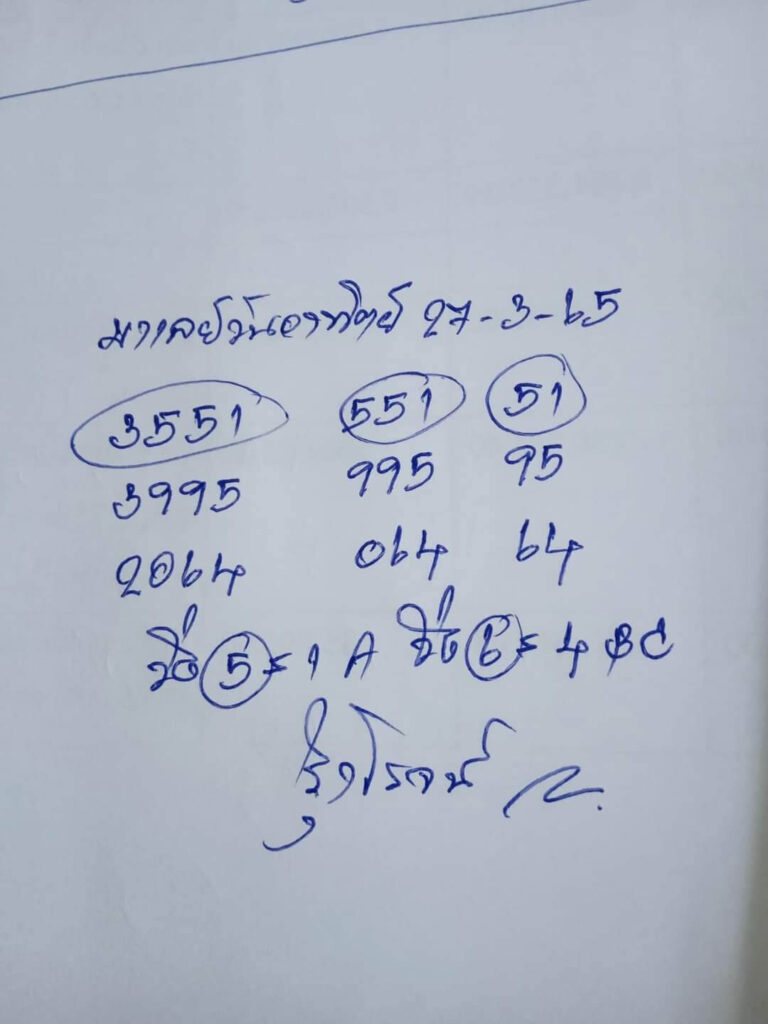 มาเลย์วันอาทิตย์ 27-3-65
3551 551 51
3995 995 95
2064 064 64
วิ่ง 5 = 1 A วิ่ง 6 = 4 BC